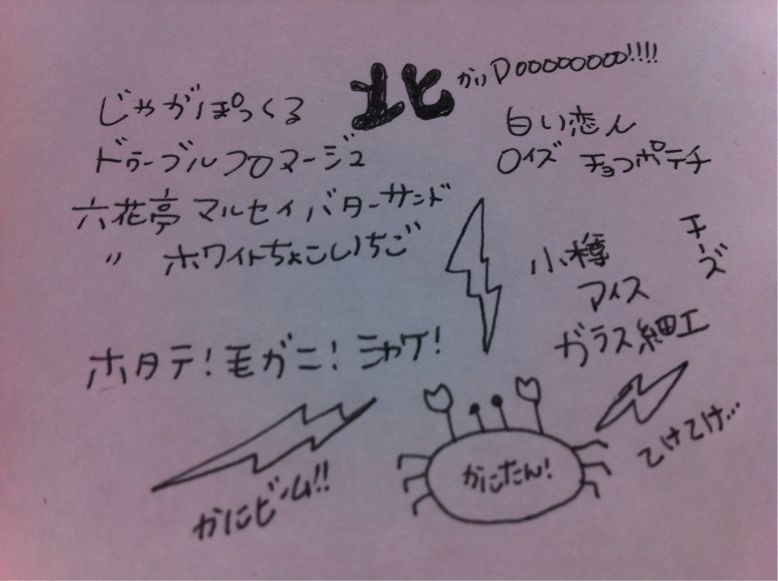 北かいDooooooooo!!!!
じゃがぽっくる
ドゥーブルフロマージュ
六花亭 マルセイバターサンド
〃 ホワイトちょこいちご
白い恋人
ロイズ チョコポテチ
小樽
チーズ
アイス
ガラス細工
ホタテ!毛ガニ!シャケ!
かにビーム!!
かにたん!
てけてけ…